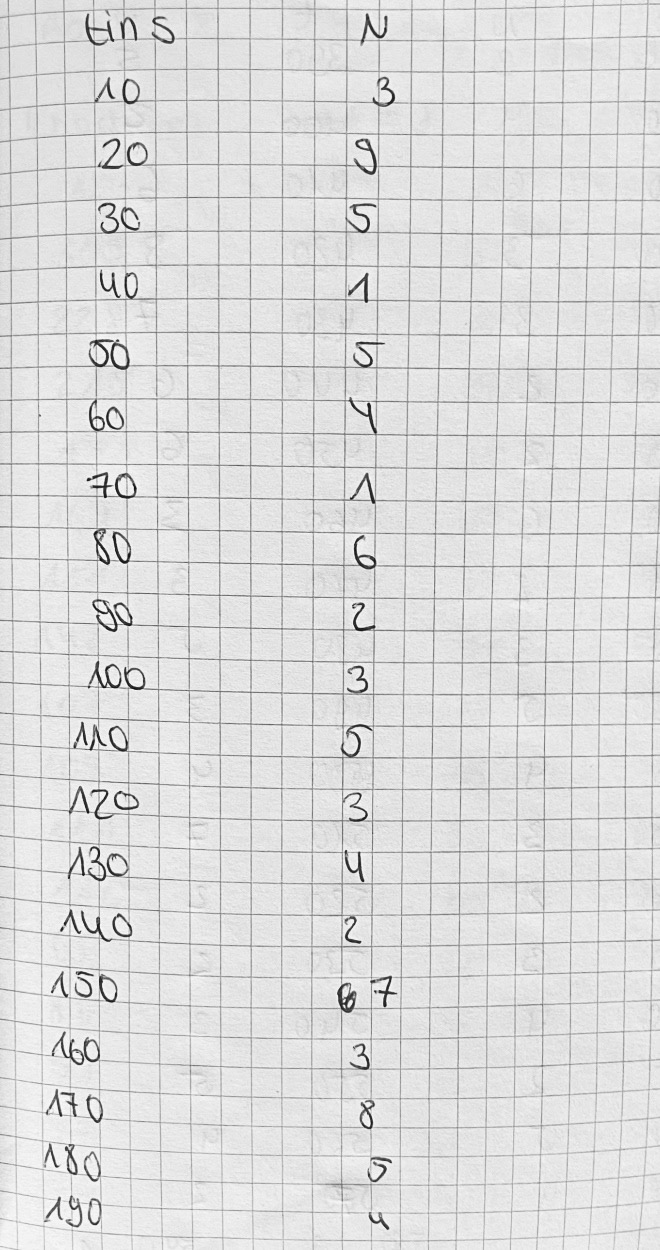 t in s N
10 3
20 9
30 5
40 1
50 5
60 4
70 1
80 6
90 2
100 3
110 5
120 3
130 4
140 2
150 7
160 3
170 8
180 5
190 4